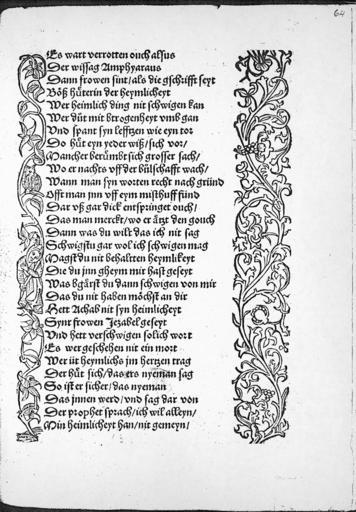 64
Es wart verrotten ouch alsus
Der wissag Amphyaraus
Dann frowen sint/ als die gschrifft seyt
Bößz hüterin der heymlicheyt
Wer heimlich ding nit schwigen kan
Wer düt mit btrogenheyt vmb gan
Vnd spant syn lefftzen wie eyn tor
Do hüt eyn yeder wiß/ sich vor/
Mancher berümbt sich grosser sach/
Wo er nachts vff der bülschafft wach/
Wann man syn worten recht nach gründ
Offt man jnn vff eym misthuff fünd
Dar vß gar dick entspringet ouch/
Das man merckt/ wo er ärzt den gouch
Dann was du wilt das ich nit sag
Schwigstu gar wol ich schwigen mag
Magst du nit behaltten heymlikeyt
Die du jnn gheym mir hast geseyt
Was bgärst du dann schwigen von mir
Das du nit haben möchst an dir
Hett Achab nit syn heimlicheyt
Synr frowen Jezabel geseyt
Vnd hett verschwigen solich wort
Es wer geschehen nit ein mort
Wer üt heymlichs jm hertzen trag
Der hüt sich/ das ers nyeman sag
So ist er sicher/ das nyeman
Das jnnen werd/ vnd sag dar von
Der prophet sprach/ ich wil alleyn/
Min heimlicheyt han/ nit gemeyn/